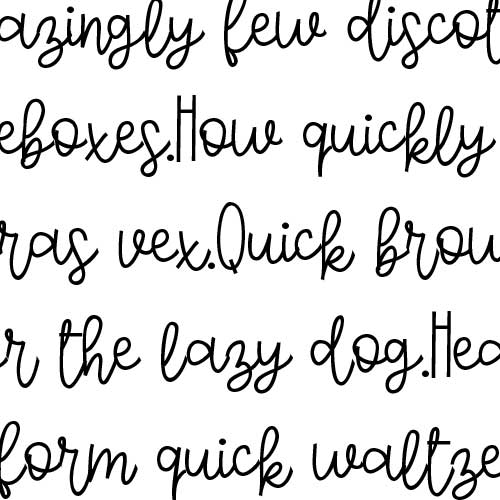 azingly few discot
eboxes.How quickly
ras vex.Quick brow
r the lazy dog.Hea
form quick waltze